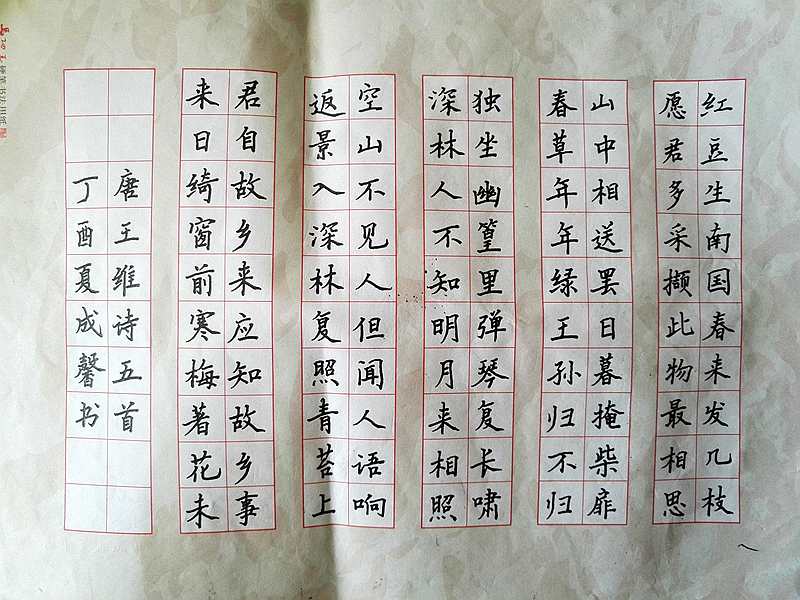 红豆生南国春来发几枝
愿君多采撷此物最相思
山中相送罢日暮掩柴扉
春草年年绿王孙归不归
独坐幽篁里弹琴复长啸
深林人不知明月来相照
空山不见人但闻人语响
返景入深林复照青苔上
君自故乡来应知故乡事
来日绮窗前寒梅著花未
唐王维诗五首
丁酉夏成馨书